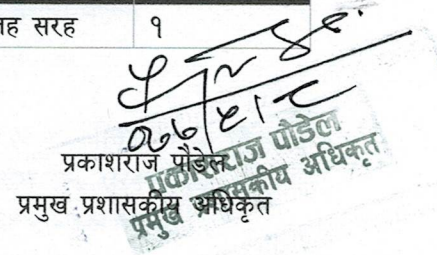 तह सरह १
प्रकाशराज पौडेल
प्रमुख प्रशासकीय अधिकृत
प्रकाशराज पौडेल
प्रमुख प्रशासकीय अधिकृत